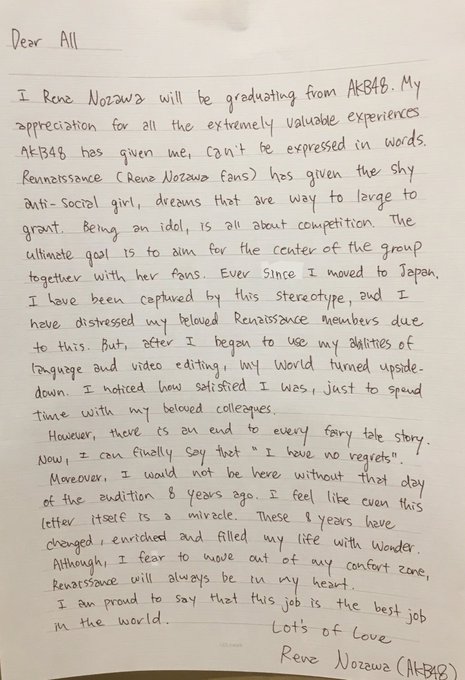 Dear All
I Rena Nozawa will be graduating from AKB48. My
appreciation for all the extremely valuable experiences
AKB48 has given me, can't be expressed in words.
Rennaissance (Rena Nozawa fans) has given the shy
anti-social girl, dreams that are way to large to
grant. Being an idol, is all about competition. The
ultimate goal is to aim for the center of the group
together with her fans. Ever since I moved to Japan,
I have been captured by this stereotype, and I
have distressed my beloved Renaissance members due
to this. But, after I began to use my abilities of
language and video editing, my world turned upside-
down. I noticed how satisfied I was, just to spend
time with my beloved colleagues.
However, there is an end to every fairy tale story.
Now, I can finally say that "I have no regrets".
Moreover, I would not be here without that day
of the audition 8 years ago. I feel like even this
letter itself is a miracle. These 8 years have
changed, enriched and filled my life with wonder.
Although, I fear to move out of my confort zone,
Renaissance will always be in my heart.
I am proud to say that this job is the best job
in the world.
Lot's of Love
Rena Nozawa (AKB48)